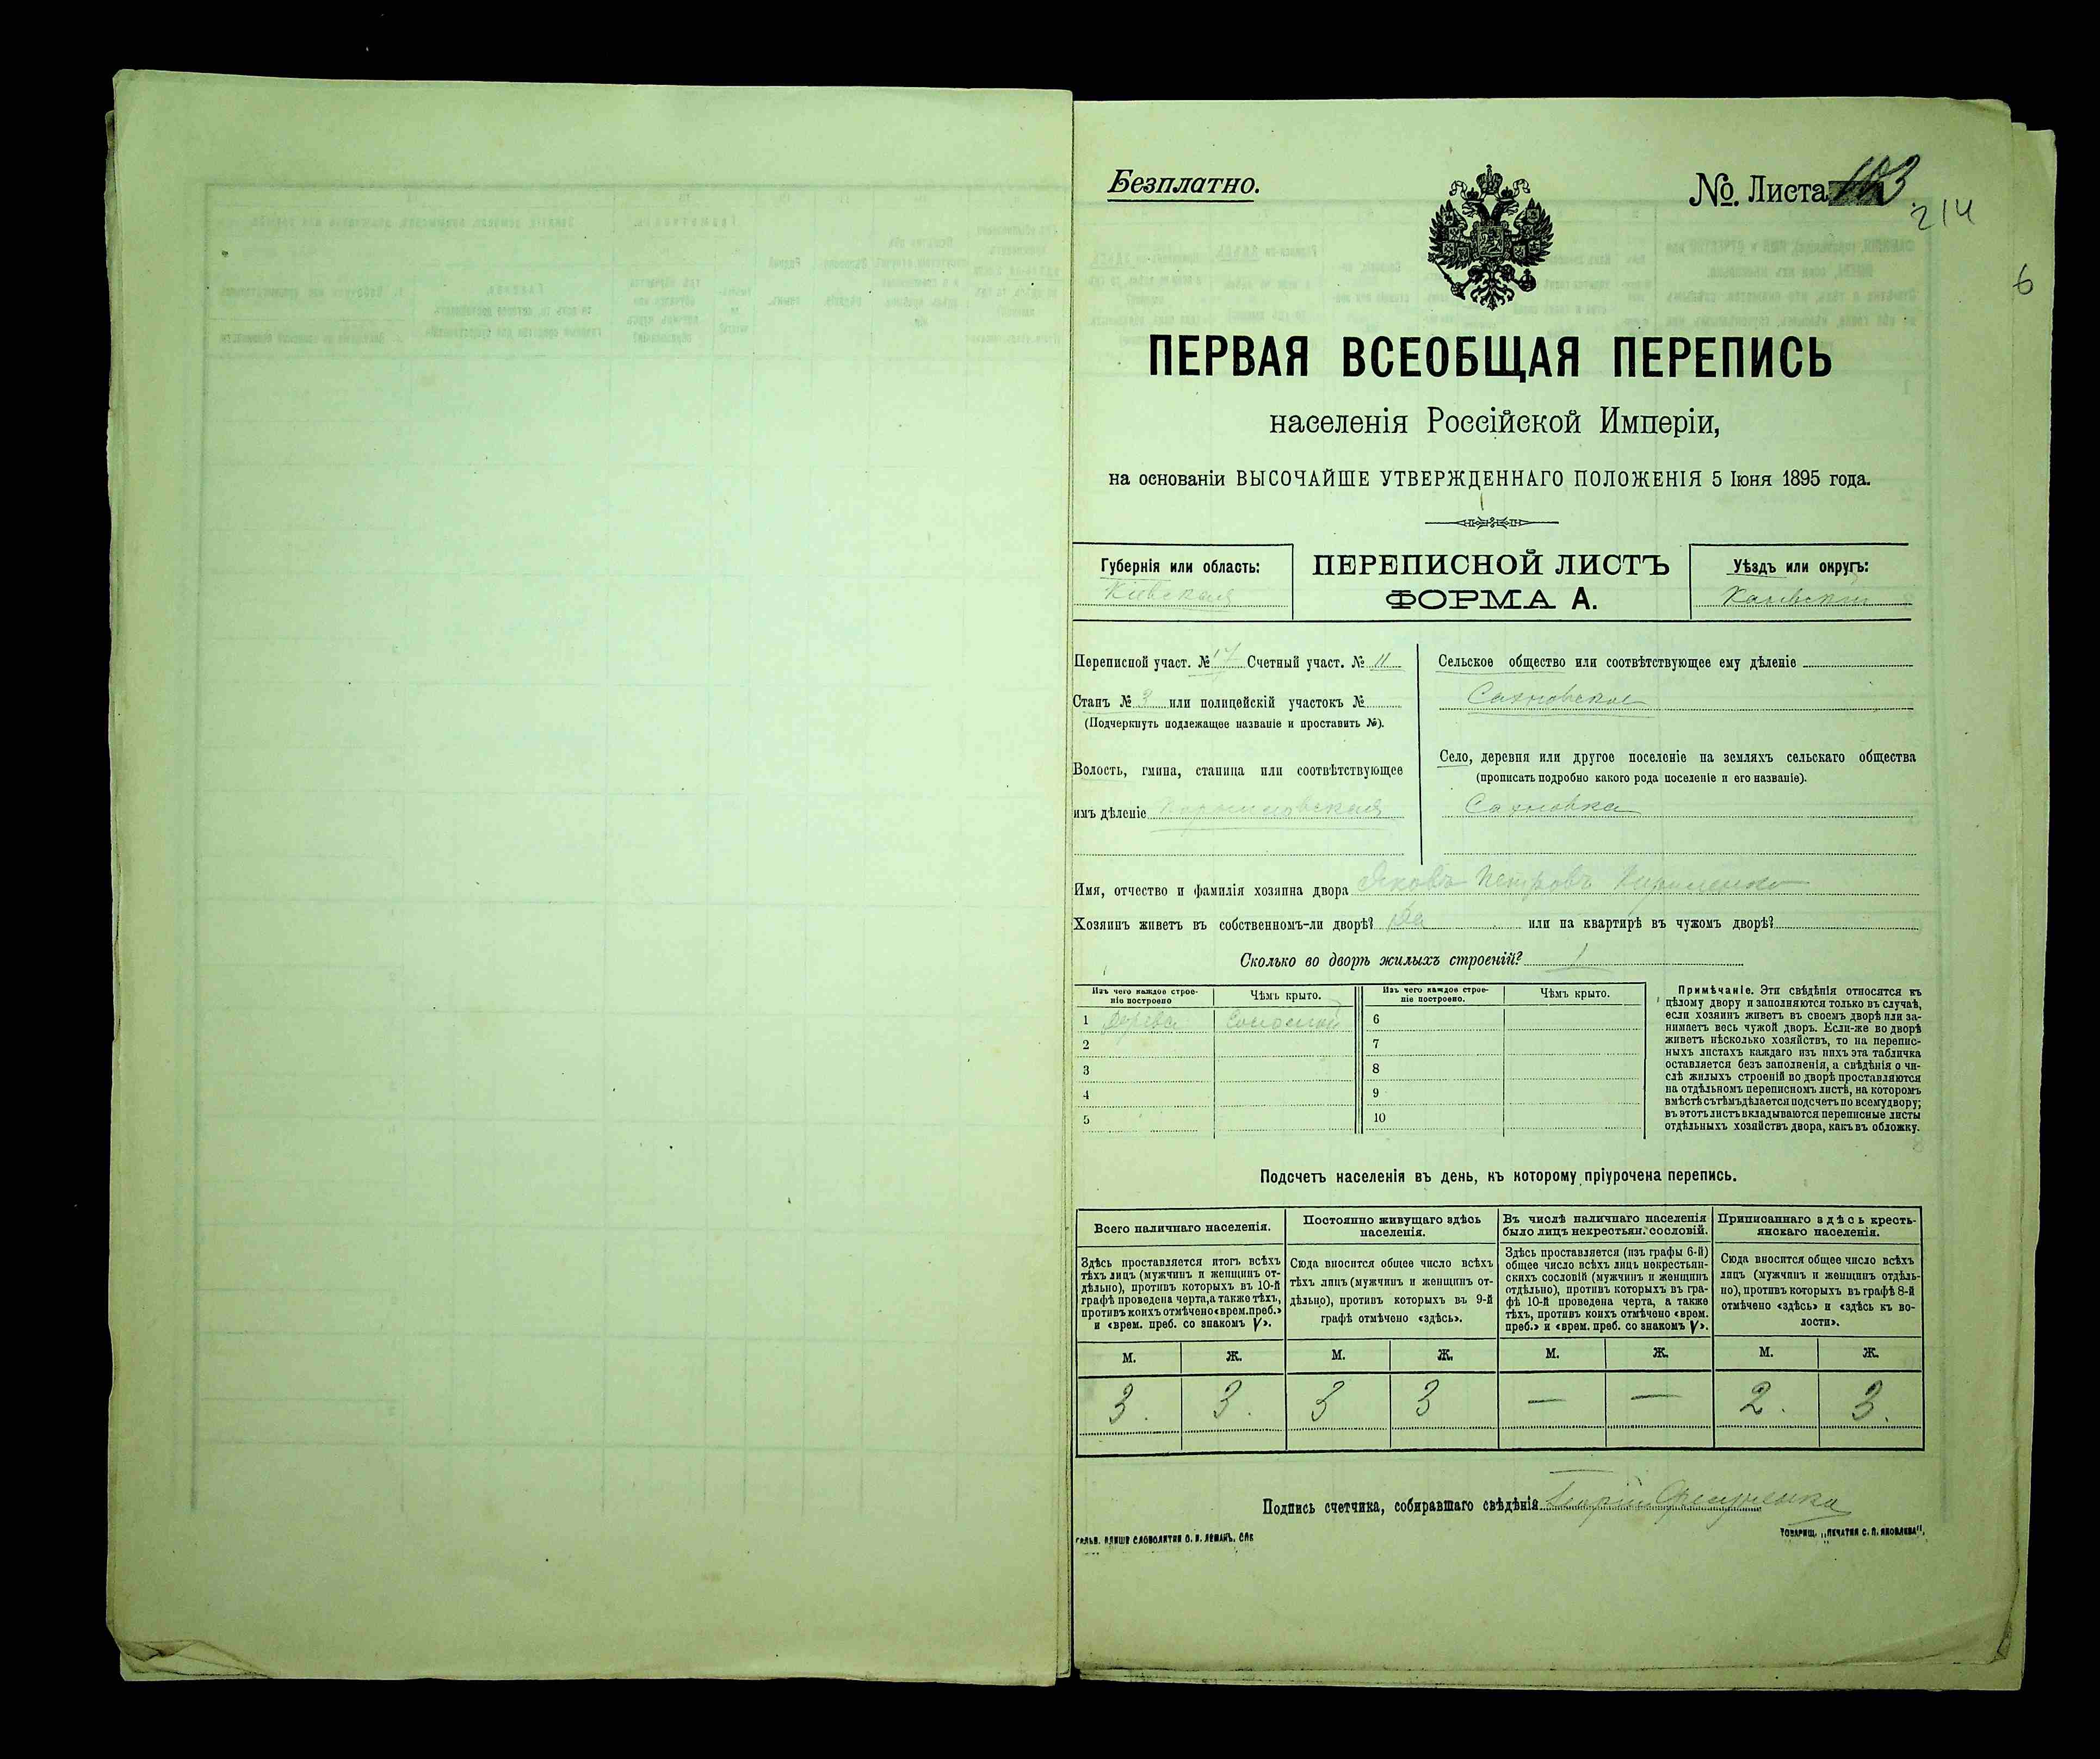 Безплатно.
№. Листа 103
214
6
ПЕРВАЯ ВСЕОБЩАЯ ПЕРЕПИСЬ
населенія Россійской Имперіи,
на основаніи ВЫСОЧАЙШЕ УТВЕРЖДЕННАГО ПОЛОЖЕНІЯ 5 Іюня 1895 года.
Губернія или область:
Кіевская
ПЕРЕПИСНОЙ ЛИСТЪ
ФОРМА А.
Уѣздъ или округъ:
Каневскій
Переписной участ. № 17 Счетный участ. № 11
Станъ № 3 или полицейскій участокъ №
(Подчеркнуть подлежащее названіе и проставить №).
Волость, гмина, станица или соотвѣтствующее
имъ дѣленіе
Сельское общество или соотвѣтствующее ему дѣленіе
Сахновское
Село, деревня или другое поселеніе на земляхъ сельскаго общества
(прописать подробно какого рода поселеніе и его названіе).
Сахновка
Имя, отчество и фамилія хозяина двора Яковъ Петровъ
Хозяинъ живетъ въ собственномъ-ли дворѣ? Да или на квартирѣ въ чужомъ дворѣ?
Сколько во дворѣ жилыхъ строеній? 1
Изъ чего каждое строе-
ніе построено
Чѣмъ крыто.
Изъ чего каждое строе-
ніе построено.
Чѣмъ крыто.
1 Дерева Соломой
2
3
4
5
6
7
8
9
10
Примѣчаніе. Эти свѣдѣнія относятся къ
цѣлому двору и заполняются только въ случаѣ,
если хозяинъ живетъ въ своемъ дворѣ или за-
нимаетъ весь чужой дворъ. Если-же во дворѣ
живетъ нѣсколько хозяйствъ, то на перепис-
ныхъ листахъ каждаго изъ нихъ эта табличка
оставляется безъ заполненія, а свѣдѣнія о чи-
слѣ жилыхъ строеній во дворѣ проставляются
на отдѣльномъ переписномъ листѣ, на которомъ
вмѣстѣ съ тѣмъ дѣлается подсчетъ по всему двору;
въ этотъ листъ вкладываются переписные листы
отдѣльныхъ хозяйствъ двора, какъ въ обложку.
Подсчетъ населенія въ день, къ которому пріурочена перепись.
Всего наличнаго населенія.
Здѣсь проставляется итогъ всѣхъ
тѣхъ лицъ (мужчинъ и женщинъ от-
дѣльно), противъ которыхъ въ 10-й
графѣ проведена черта, а также тѣхъ,
противъ коихъ отмѣчено «врем. преб.»
и «врем. преб. со знакомъ V».
Постоянно живущаго здѣсь
населенія.
Сюда вносится общее число всѣхъ
тѣхъ лицъ (мужчинъ и женщинъ от-
дѣльно), противъ которыхъ въ 9-й
графѣ отмѣчено «здѣсь».
Въ числѣ наличнаго населенія
было лицъ некрестьян. сословій.
Здѣсь проставляется (изъ графы 6-й)
общее число всѣхъ лицъ некрестьян-
скихъ сословій (мужчинъ и женщинъ
отдѣльно), противъ которыхъ въ гра-
фѣ 10-й проведена черта, а также
тѣхъ, противъ коихъ отмѣчено «врем.
преб.» и «врем. преб. со знакомъ V».
Приписаннаго здѣсь кресть-
янскаго населенія.
Сюда вносится общее число всѣхъ
лицъ (мужчинъ и женщинъ отдѣль-
но), противъ которыхъ въ графѣ 8-й
отмѣчено «здѣсь» и «здѣсь къ во-
лости».
М. Ж. М. Ж. М. Ж. М. Ж.
3. 3. 3 3 — — 2. 3.
Подпись счетчика, собиравшаго свѣдѣнія
ГАЛЬВ. КЛИШЕ СЛОВОЛИТНИ О. И. ЛЕМАНЪ, СПБ
ТОВАРИЩ. „ПЕЧАТНЯ С. П. ЯКОВЛЕВА".